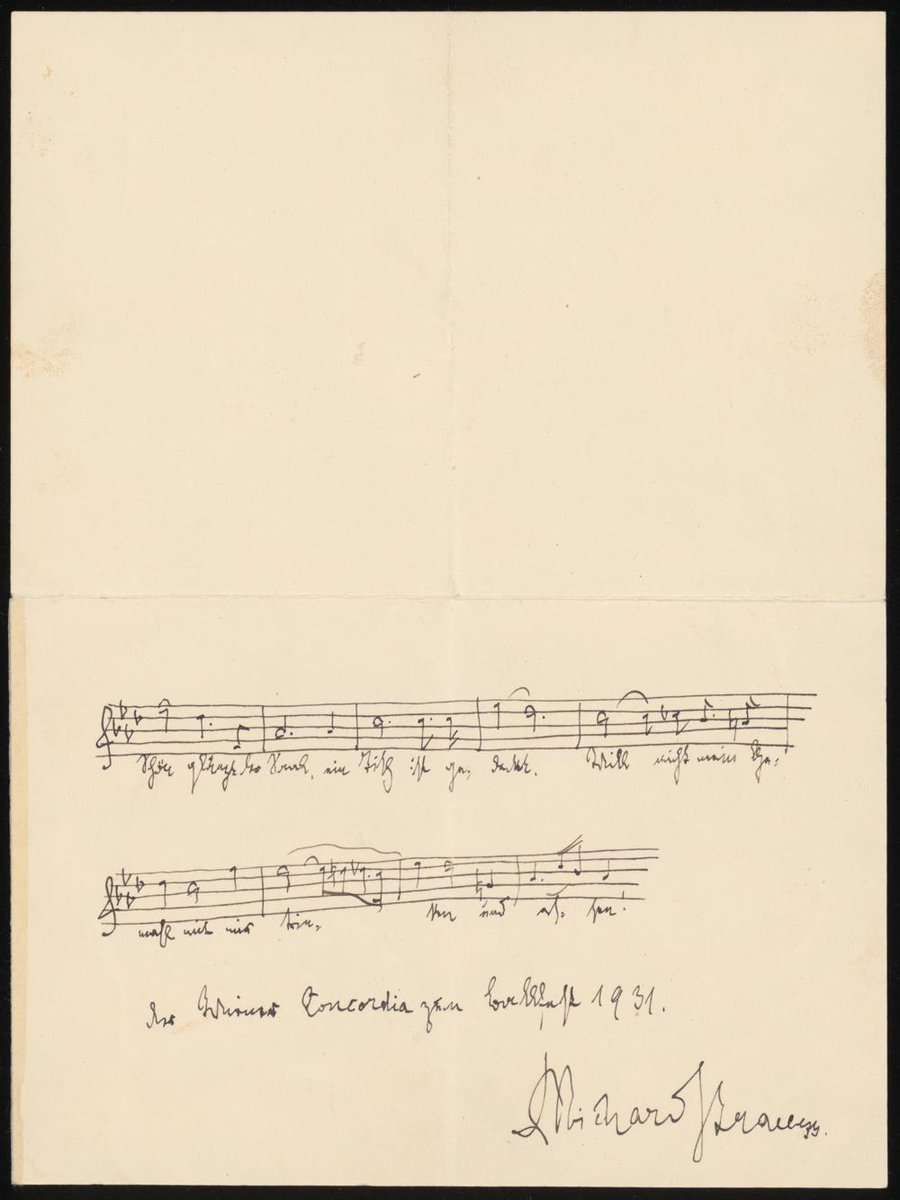 Schön glänzt der Saal, ein Tisch ist ge- deckt. Will nicht mein Ge-
mahl mit mir trin- ken und es- sen!
der Wiener Concordia zum Ballfest 1931.
DrRichard Strauss.